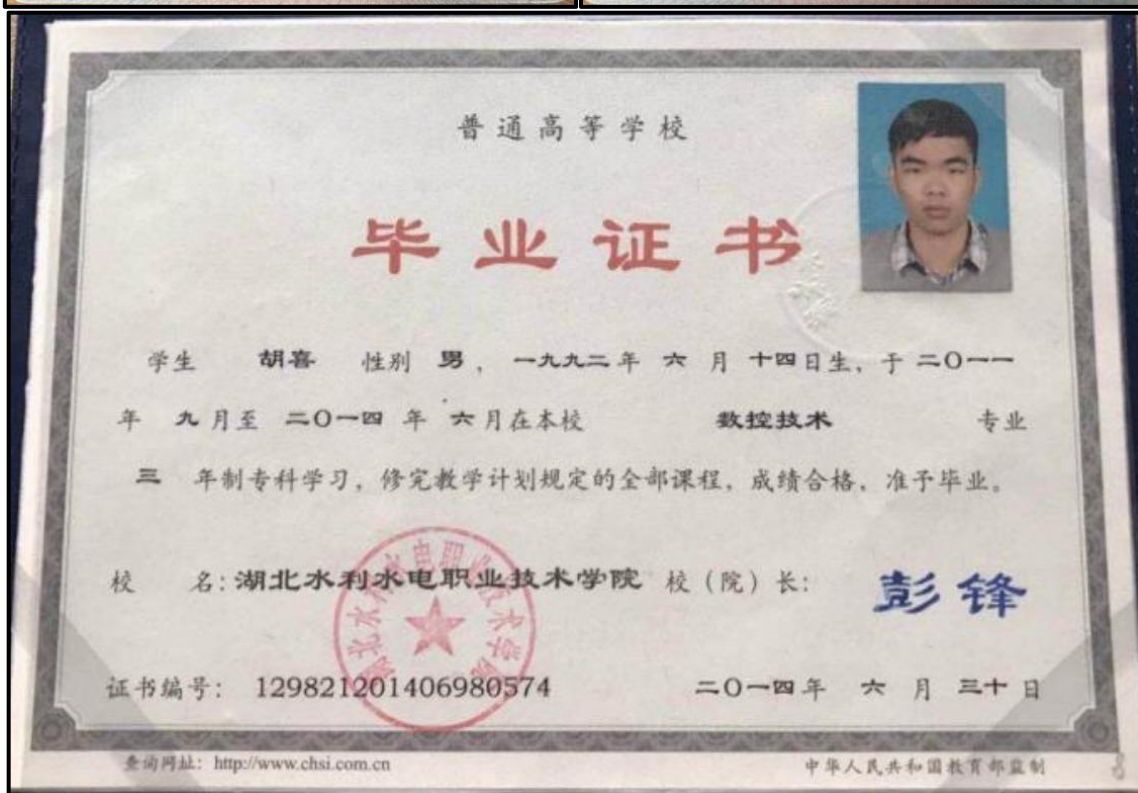 普通高等学校
毕业证书
学生 胡喜 性别 男，一九九二年 六 月 十四日生，于二〇一一
年 九月至 二〇一四 年 六月在本校 数控技术 专业
三 年制专科学习，修完教学计划规定的全部课程，成绩合格，准予毕业。
校 名：湖北水利水电职业技术学院 校（院）长： 彭锋
湖北水利水电职业技术学院
证书编号： 129821201406980574 二〇一四年 六 月 三十 日
查询网址：http://www.chsi.com.cn 中华人民共和国教育部监制